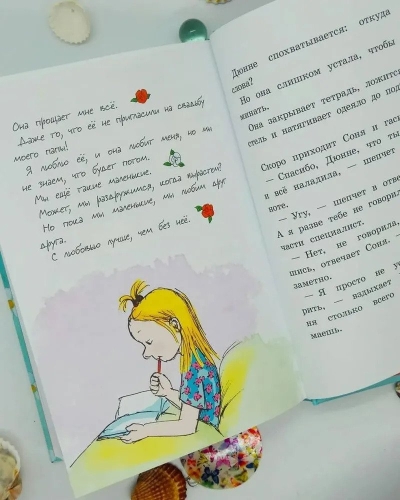 Она прощает мне всё.
Даже то, что её не пригласили на свадьбу
моего папы!
Я люблю её, и она любит меня, но мы
не знаем, что будет потом.
Мы ещё такие маленькие.
Может, мы раздружимся, когда вырастем?
Но пока мы маленькие, мы любим друг
друга.
С любовью лучше, чем без неё.
Дюнне спохватывается: откуда
слова?
Но она слишком устала, чтобы
Она закрывает тетрадь, ложится
стель и натягивает одеяло до под
Скоро приходит Соня и гаси
— Спасибо, Дюнне, что ты
я всё наладила, — шепчет
воте.
— Угу, — шепчет в отве
А я разве тебе не говорил
части специалист.
— Нет, не говорила,
шись, отвечает Соня. —
заметно.
— Я просто не у
рить, — вздыхает
ня столько всего
маешь.